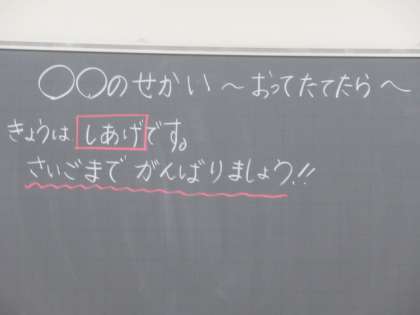 ○○のせかい～おってたてたら～
きょうは しあげです。
さいごまで がんばりましょう!!